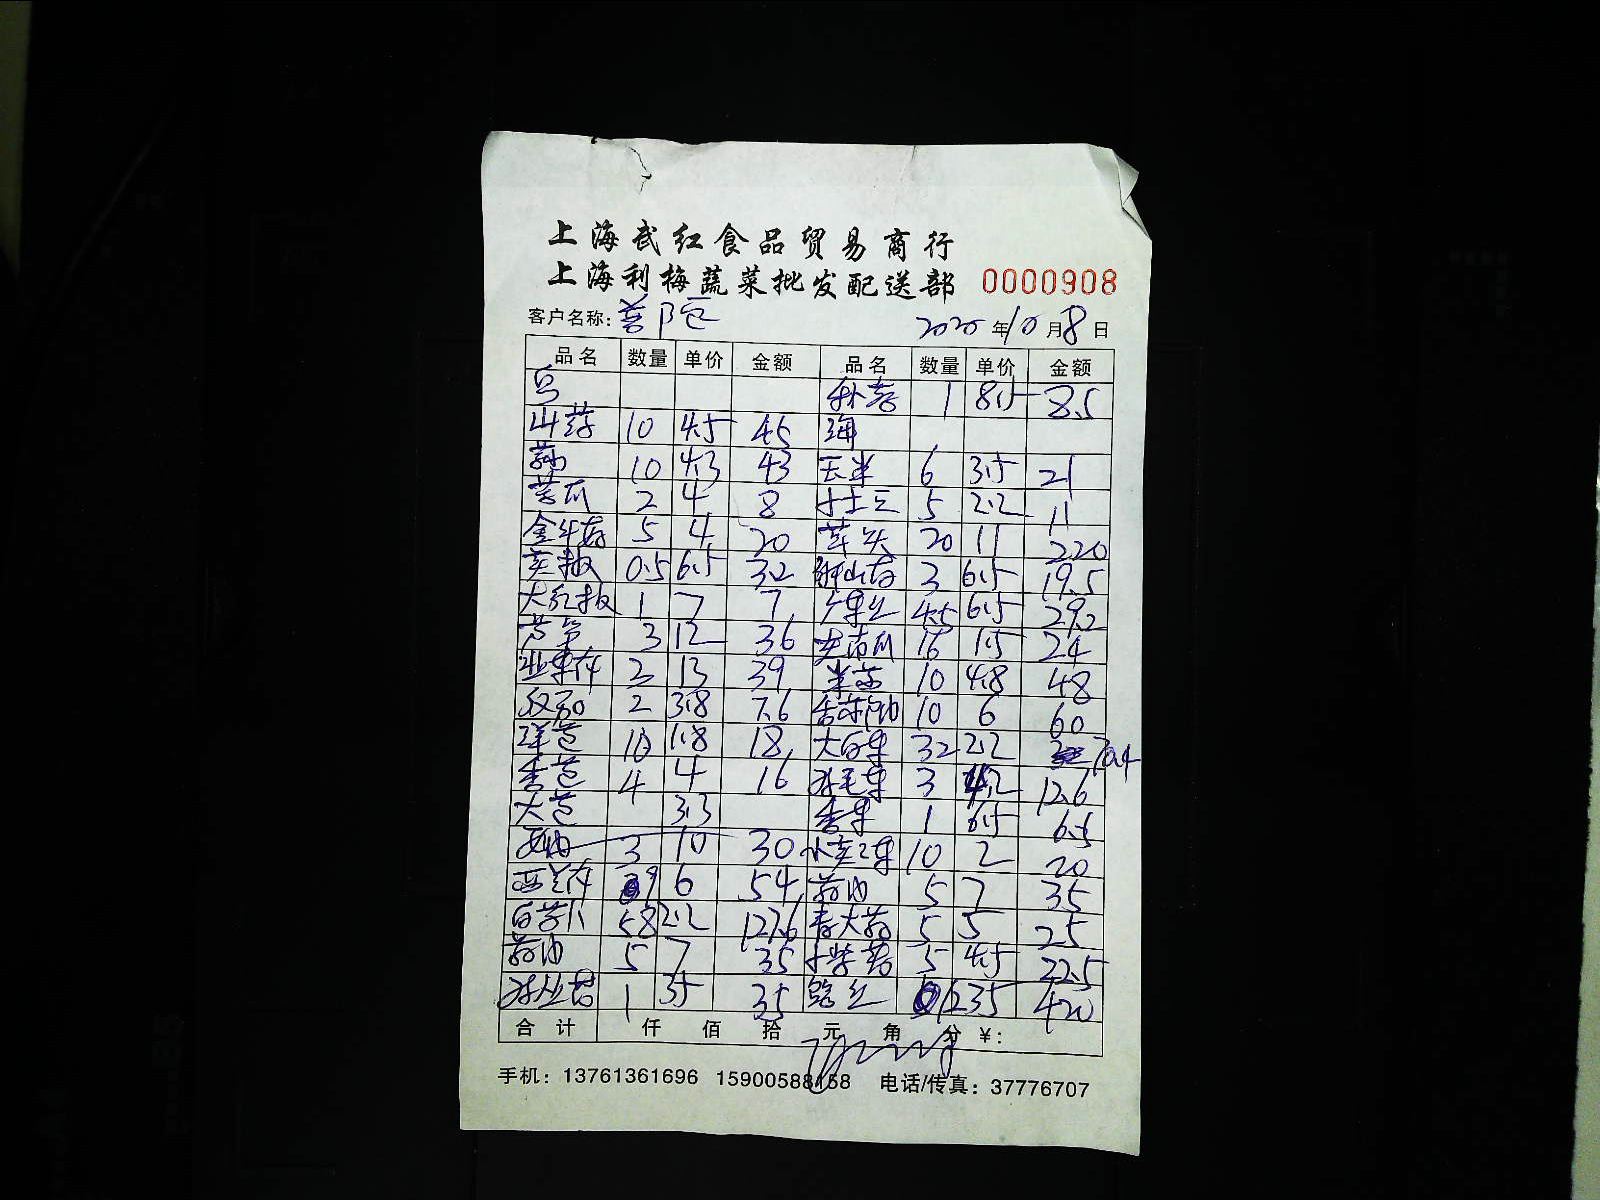 上海武红食品贸易商行
上海利梅蔬菜批发配送部 0000908
客户名称: 2020年10月8日
品名 数量 单价 金额 品名 数量 单价 金额
1 8.5 8.5
山药 10 4.5 45 海
10 4.3 43 玉米 6 3.5 21
苦瓜 2 4 8 小土豆 5 2.2 11
金针菇 5 4 20 芋头 20 11 220
0.5 6.5 3.2 3 6.5 19.5
大红椒 1 7 7 4.5 6.5 29.2
3 12 36 老南瓜 16 1.5 24
3 13 39 10 4.8 48
2 3.8 7.6 10 6 60
洋葱 10 1.8 18 大白菜 32 2.2 70.4
香葱 4 4 16 鸡毛菜 3 4.2 12.6
大葱 3.3 香菜 1 6.5 6.5
3 10 30 10 2 20
西兰花 9 6 54 5 7 35
白萝卜 58 2.2 127.6 5 5 25
5 7 35 5 4.5 22.5
1 35 35 12 35 420
合计 仟 佰 拾 元 角 分 ¥:
手机: 13761361696 15900588158 电话/传真: 37776707